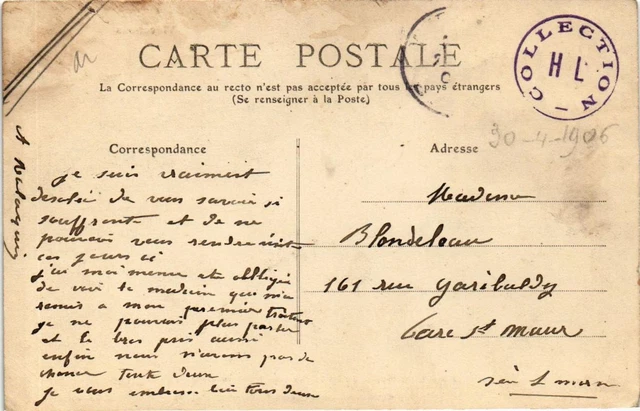 CARTE POSTALE
COLLECTION
H L
La Correspondance au recto n'est pas acceptée par tous les pays étrangers
(Se renseigner à la Poste)
30-4-1906
Correspondance
Je suis vraiment
desolée de vous savoir si
souffrante et de ne
pouvoir vous rendre visite
ces jours ci
j'ai moi meme été obligée
de voir le medecin qui m'a
remis a mon premier
je ne pouvais plus
et le bras pris aussi
enfin nous n'avons pas de
chance toute deux
je vous embrasse bien tous deux
Adresse
Madame
Blondeleau
161 rue Garibaldy
Parc St Maur